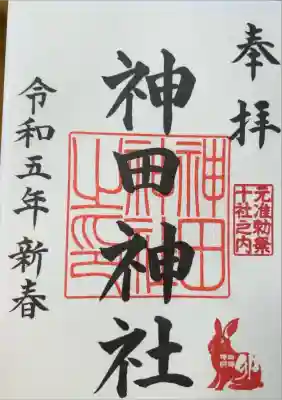 奉拝
元准勅祭
十社之内
神田神社
神田
神社
之印
令和五年新春